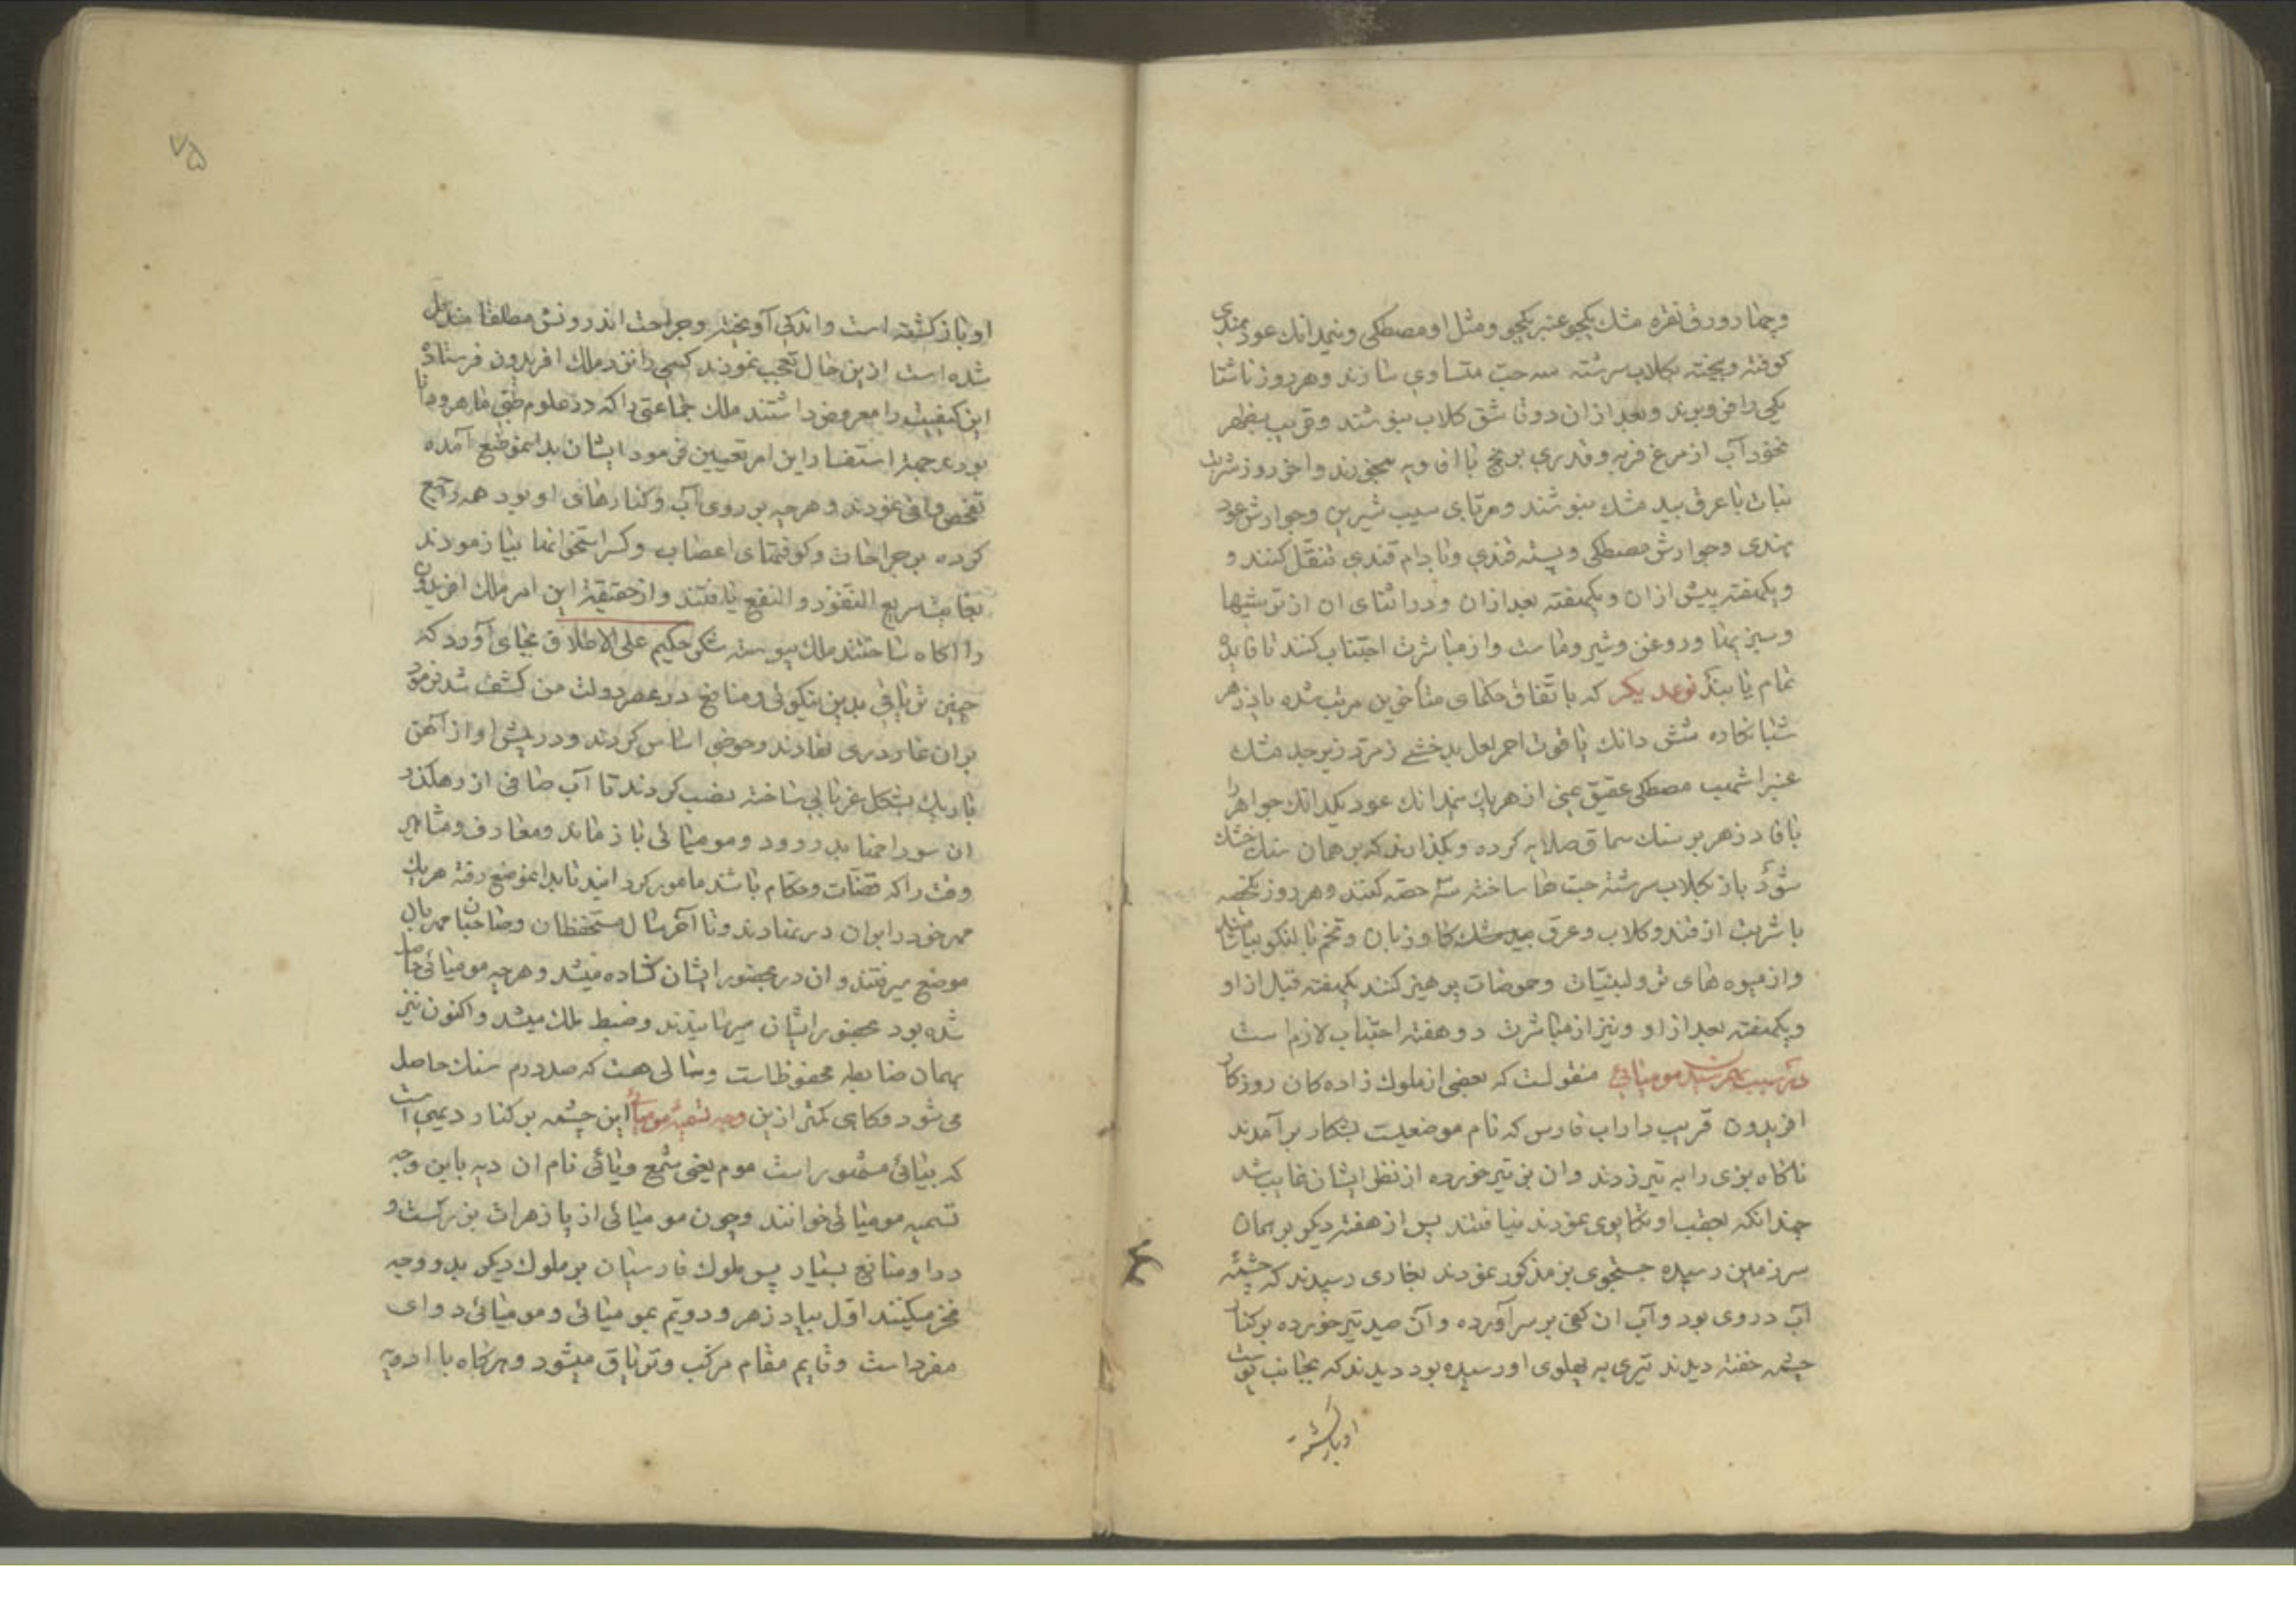 وچهار ورق نقره مشک یکجو عنبر یکجو ومثل او مصطکی ونیمدانک عود هندی
کوفته وبیخته بکلاب سرشته سه حب متساوی سازند وهر روز ناشتا
یکی را فرو برند وبعد از ان دو تا شق کلاب بنوشند وقریب بظهر
نخود آب از مرغ فربه وقدری برنج با افاویه بخورند واخر روز شربت
نبات با عرق بید مشک بنوشند ومربای سیب شیرین وجوارش عود
هندی وجوارش مصطکی وپسته قندی وبادام قندی تنقل کنند و
ویکهفته پیش از ان ویکهفته بعد از ان ودر اثنای ان از ترشیها
وسبزیها وروغن وشیر وماست واز مباشرت اجتناب کنند تا فایدهٔ
تمام یابند نوعدیکر که باتفاق حکمای متأخرین مرتب شده پادزهر
شبانکاره شش دانک یاقوت احمر لعل بدخشی زمرد زبرجد مشک
عنبر اشهب مصطکی عقیق یمنی از هر یک نیمدانک عود یکدانک جواهر را
با فادزهر بر سنک سماق صلایه کرده وبکذارند که بر همان سنک خشک
شود باز بکلاب سرشته حبها ساخته سه حصه کنند وهر روز یکحصه
با شربت از قند وکلاب وعرق بیدمشک کاوزبان وتخم بالنکو
واز میوه های تر ولبنیات وحموضات پرهیز کنند یکهفته قبل از او
ویکهفته بعد از او ونیز از مباشرت دو هفته اجتناب لازم است
در سبب مومیائی منقولست که بعضی از ملوک زاده کان روزکار
افریدون قریب داراب فارس که نام موضعیست بشکار برآمدند
ناکاه بزی را به تیر زدند وان بز تیر خورده از نظر ایشان غایب شد
چندانکه بعقب او تکاپوی نمودند نیافتند پس از هفتهٔ دیکر بر همان
سرزمین رسیده جستجوی بز مذکور نمودند بغاری رسیدند که چشمهٔ
آب در وی بود وآب ان کفی بر سر آورده وآن صید تیر خورده بر کنار
چشمه خفته دیدند تیری به پهلوی او رسیده بود دیدند که بجانب پوست
او باز کشته
۷۵
او باز کشته است واندکی آویخته وجراحت اندرونش مطلقا مندمل
شده است ازین حال تعجب نمودند کسی را نزد ملک افریدون فرستاده
این کیفیت را معروض داشتند ملک جماعتی را که در علوم طبی ماهر ودانا
بودند جهة استفسار این امر تعیین فرمود ایشان بدانموضع آمده
تفحص وافی نمودند وهرچه بر روی آب وکنارهای او بود همه را جمع
کرده بر جراحات وکوفتهای اعصاب وکسر استخوانها بیازمودند
بغایت سریع النفوذ والنفع یافتند واز حقیقة این امر ملک افریدون
را اکاه ساختند ملک پیوسته شکر حکیم علی الاطلاق بجای آورد که
چنین تریاقی بدین نیکوئی ومنافع در عصر دولت من کشف شد فرمود
بران غار دری نهادند وحوضی اساس کردند ودر پیش او از آهن
باریک بشکل غربالی ساخته نصب کردند تا آب صافی از رهکذر
ان سوراخها بدر رود ومومیائی باز ماند ومعارف ومشاهیر
وقت را که قضات وحکام باشند مامور کردانید تا بدانموضع رفته هر یک
مهر خود را بران در نهادند وتا آخر سال مستحفظان وصاحبان مهر بان
موضع میرفتند وان در بحضور ایشان کشاده میشد وهرچه مومیائی حاصل
شده بود بحضور ایشان میرسانیدند وضبط ملک میشد واکنون نیز
بهمان ضابطه محفوظ است وسالی هست که صد درم سنک حاصل
می شود وکاهی کمتر ازین وجه تسمیهٔ مومیائی این چشمه بر کنار دیهی است
که بیائی مشهور است موم یعنی شمع ویائی نام ان دیه باین وجه
تسمیه مومیائی خوانند وچون مومیائی از پازهرات بزرکست و
در او منافع بسیار پس ملوک فارسیان بر ملوک دیکر بدو وجه
فخر میکنند اول بپادزهر ودویم بمومیائی ومومیائی دوای
مفرد است وقایم مقام مرکب وتریاق میشود وهرکاه با ادویه